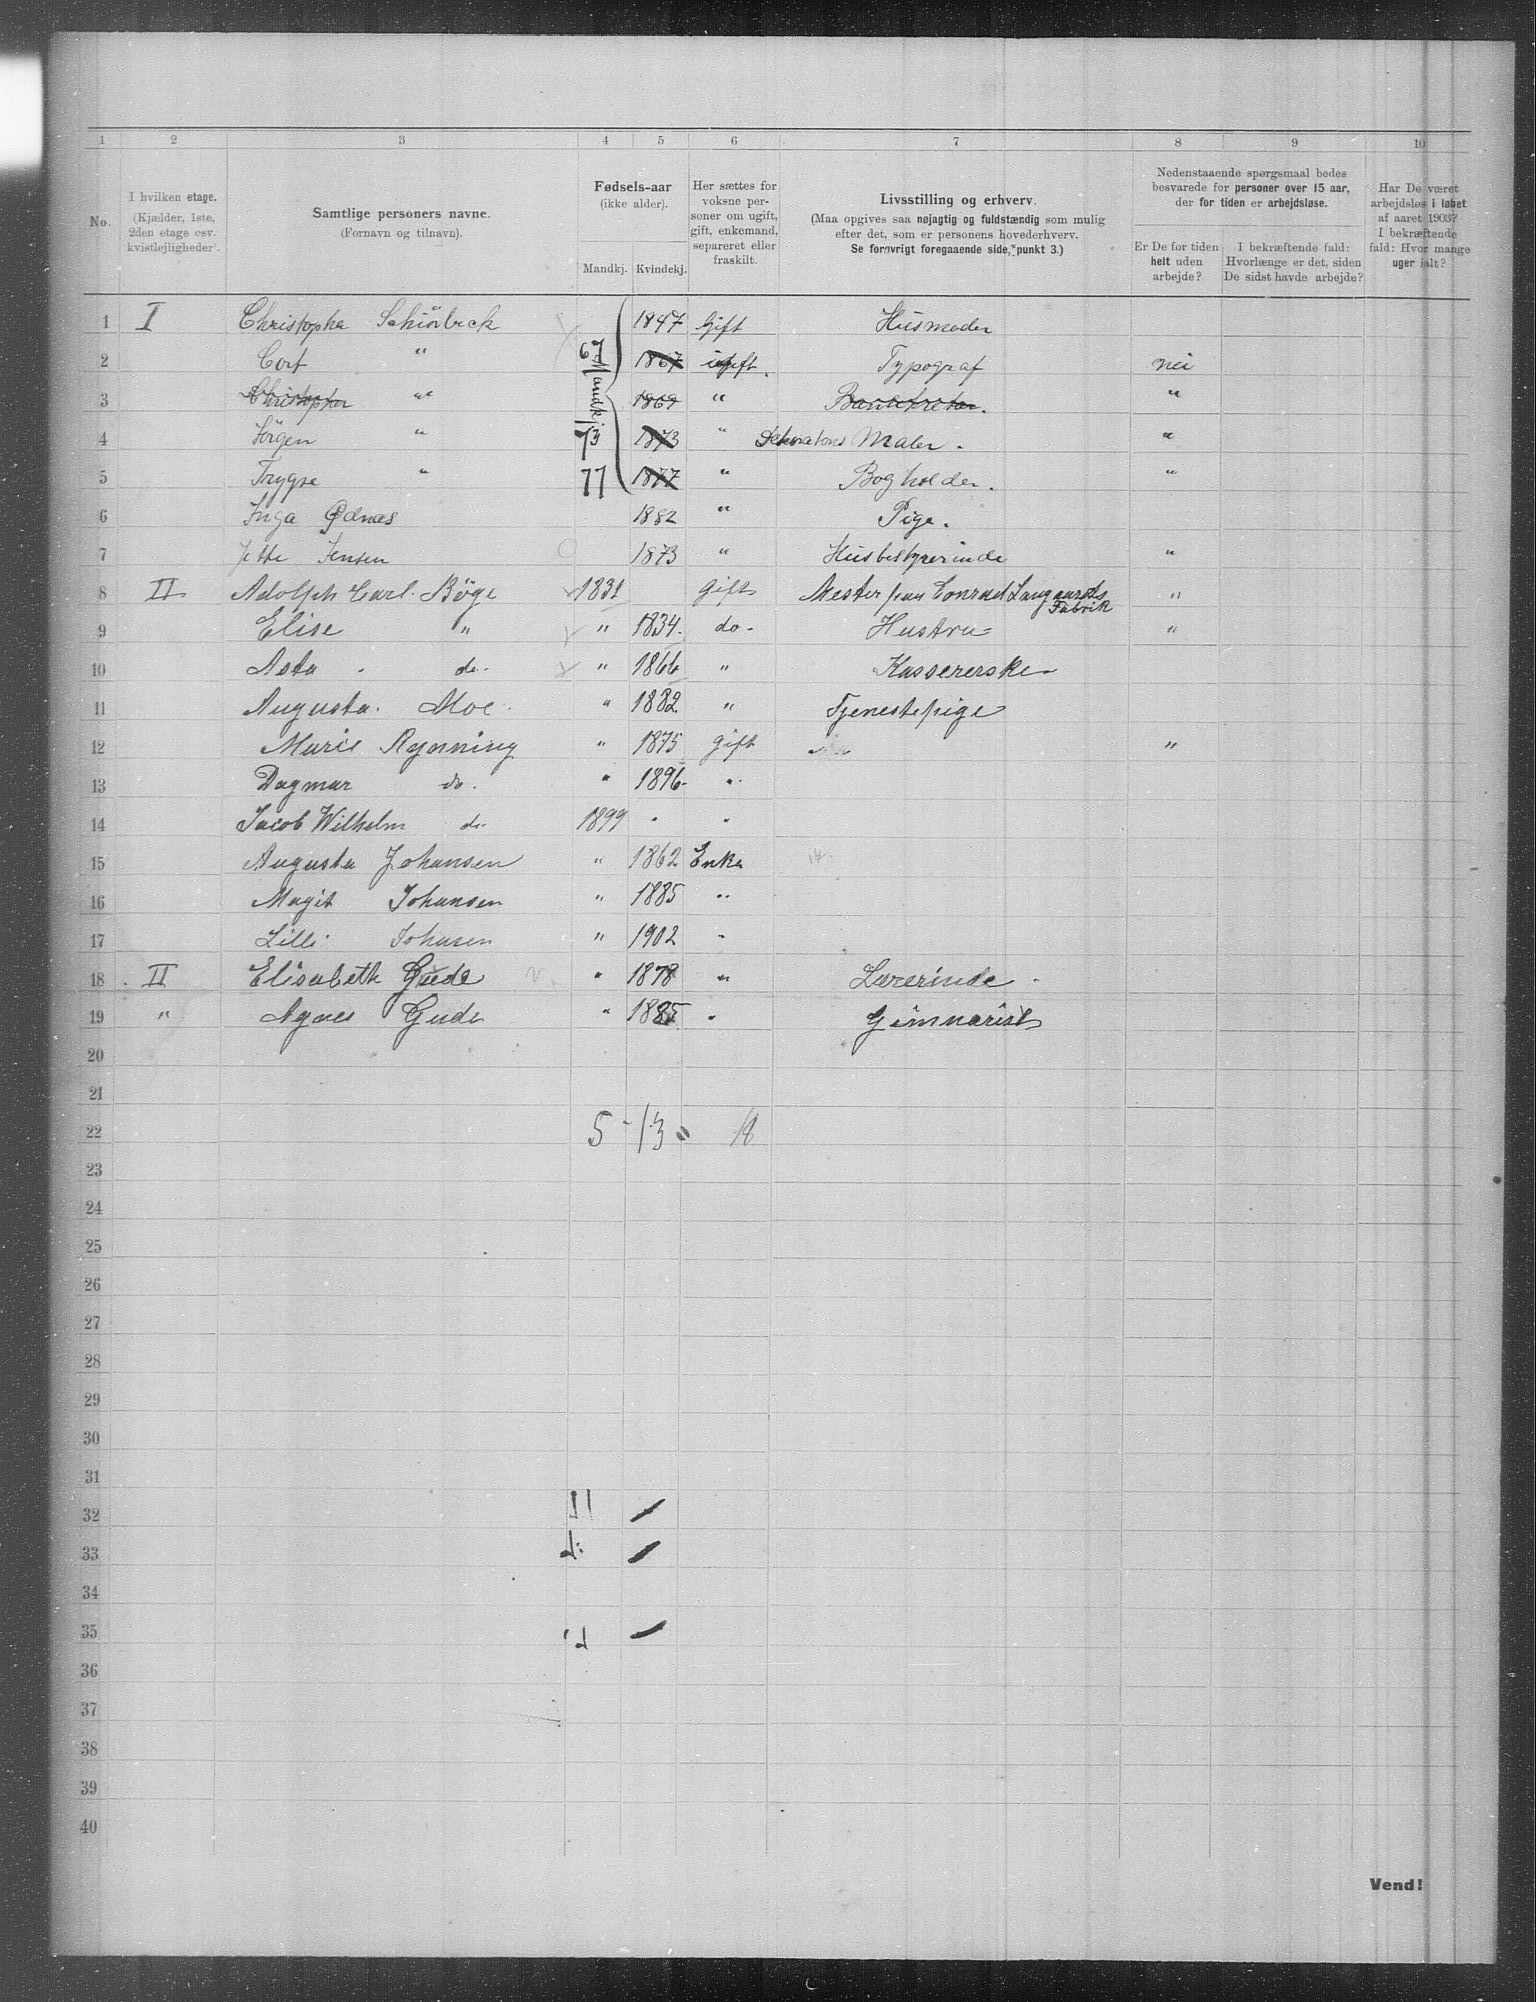 1 2 3 4 5 6 7 8 9 10
No.
I hvilken etage.
(Kjælder, 1ste, 2den etage osv. kvistlejligheder).
Samtlige personers navne.
(Fornavn og tilnavn).
Fødsels-aar
(ikke alder).
Mandkj. Kvindekj.
Her sættes for voksne personer om ugift, gift, enkemand, separeret eller fraskilt.
Livsstilling og erhverv.
(Maa opgives saa nøjagtig og fuldstændig som mulig efter det, som er personens hovederhverv.
Se forøvrigt foregaaende side, punkt 3.)
Nedenstaaende spørgsmaal bedes besvarede for personer over 15 aar, der for tiden er arbejdsløse.
Er De for tiden helt uden arbejde?
I bekræftende fald: Hvorlænge er det, siden De sidst havde arbejde?
Har De været arbejdsløs i løbet af aaret 1903? I bekræftende fald: Hvor mange uger ialt?
1 I Christopha Schiörbeck 1847 Gift Husmoder
2 Cort " 67 Mandkj. 1867 Typograf nei
3 Christopher " 1869 " "
4 Jörgen " 73 1873 " Dekorations Maler. "
5 Trygve " 77 1877 " Bogholder. "
6 Inga Ødnæs 1882 " Pige.
7 Jette Jensen 1873 " Husbestyrerinde "
8 II Adolph Carl Böge 1831 gift Mester paa Conrad Langaards Fabrik "
9 Elise " " 1834. do- Hustru "
10 Asta do. " 1866 " Kassererske
11 Augusta Moe " 1882 " Tjenestepige
12 Marie Rynning " 1875 gift "
13 Dagmar do. " 1896 "
14 Jacob Wilhelm do. 1899 " "
15 Augusta Johansen " 1862 Enke
16 Magit Johansen " 1885 "
17 Lilli Johansen " 1902 "
18 II Elisabeth Gude " 1878 " Lærerinde
19 " Agnes Gude " 1885 " Gimnasist
20
21
22 5 - 13 " 18
23
24
25
26
27
28
29
30
31
32
33
34
35
36
37
38
39
40
Vend!